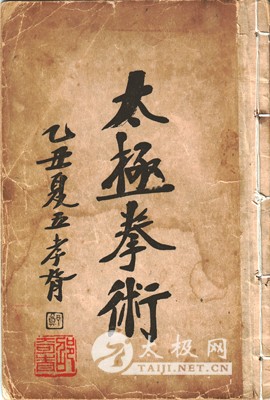 太極拳術
乙丑夏五孝胥
太极网
TAIJI.NET.CN